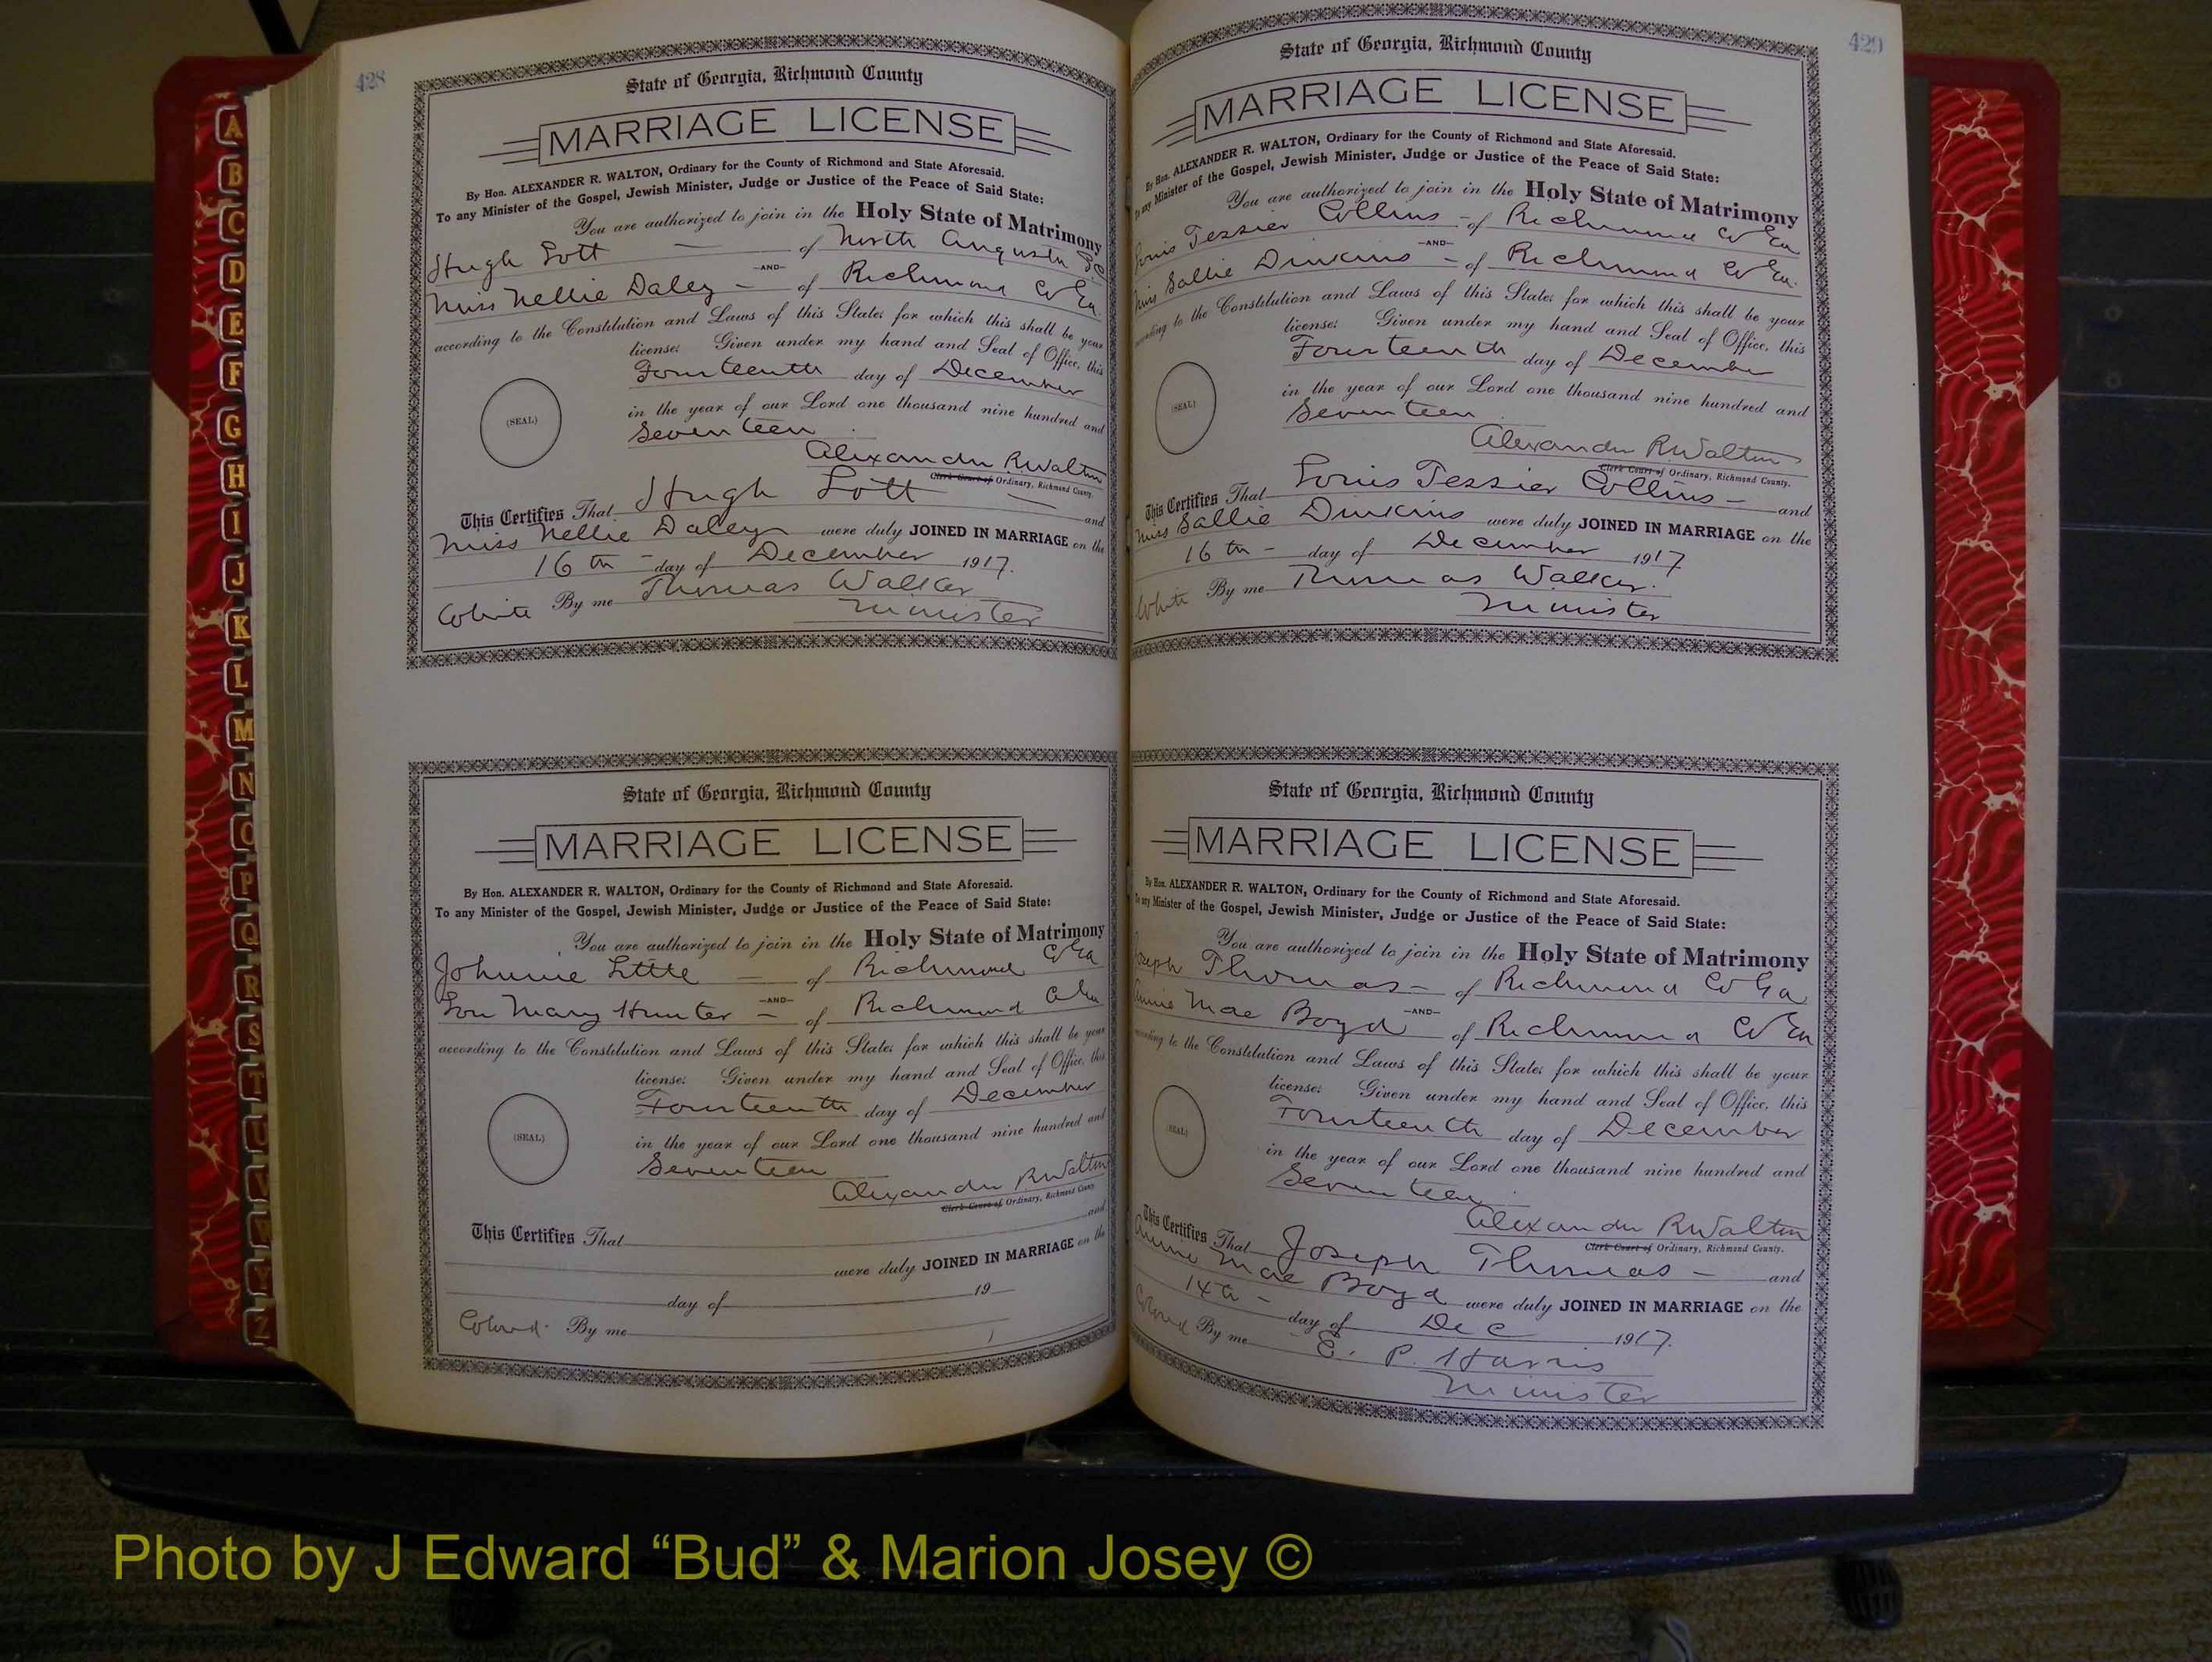 428
State of Georgia, Richmond County
MARRIAGE LICENSE
By Hon. ALEXANDER R. WALTON, Ordinary for the County of Richmond and State Aforesaid.
To any Minister of the Gospel, Jewish Minister, Judge or Justice of the Peace of Said State:
You are authorized to join in the Holy State of Matrimony
Hugh Lott — of North Augusta SC
—AND—
Miss Nellie Daley — of Richmond Co Ga.
according to the Constitution and Laws of this State; for which this shall be your
license. Given under my hand and Seal of Office, this
Fourteenth day of December
(SEAL)
in the year of our Lord one thousand nine hundred and
Seventeen
Alexander R Walton
Clerk Court of Ordinary, Richmond County.
This Certifies That Hugh Lott — and
Miss Nellie Daley were duly JOINED IN MARRIAGE on the
16th - day of December 1917.
White By me Thomas Walker
Minister
State of Georgia, Richmond County
MARRIAGE LICENSE
By Hon. ALEXANDER R. WALTON, Ordinary for the County of Richmond and State Aforesaid.
To any Minister of the Gospel, Jewish Minister, Judge or Justice of the Peace of Said State:
You are authorized to join in the Holy State of Matrimony
Johnnie Little — of Richmond Co Ga
—AND—
Lou Mary Hunter — of Richmond Co Ga
according to the Constitution and Laws of this State; for which this shall be your
license. Given under my hand and Seal of Office, this
Fourteenth day of December
(SEAL)
in the year of our Lord one thousand nine hundred and
Seventeen
Alexander R Walton
Clerk Court of Ordinary, Richmond County.
This Certifies That and
were duly JOINED IN MARRIAGE on the
day of 19
Colored. By me
429
State of Georgia, Richmond County
MARRIAGE LICENSE
By Hon. ALEXANDER R. WALTON, Ordinary for the County of Richmond and State Aforesaid.
To any Minister of the Gospel, Jewish Minister, Judge or Justice of the Peace of Said State:
You are authorized to join in the Holy State of Matrimony
Louis Tessier Collins - of Richmond Co Ga
—AND—
Miss Sallie Dinkins - of Richmond Co Ga.
according to the Constitution and Laws of this State; for which this shall be your
license. Given under my hand and Seal of Office, this
Fourteenth day of December
(SEAL)
in the year of our Lord one thousand nine hundred and
Seventeen
Alexander R Walton
Clerk Court of Ordinary, Richmond County.
This Certifies That Louis Tessier Collins — and
Miss Sallie Dinkins were duly JOINED IN MARRIAGE on the
16th - day of December 1917
White By me Thomas Walker.
Minister
State of Georgia, Richmond County
MARRIAGE LICENSE
By Hon. ALEXANDER R. WALTON, Ordinary for the County of Richmond and State Aforesaid.
To any Minister of the Gospel, Jewish Minister, Judge or Justice of the Peace of Said State:
You are authorized to join in the Holy State of Matrimony
Joseph Thomas - of Richmond Co Ga
—AND—
Annie Mae Boyd of Richmond Co Ga
according to the Constitution and Laws of this State; for which this shall be your
license. Given under my hand and Seal of Office, this
Fourteenth day of December
(SEAL)
in the year of our Lord one thousand nine hundred and
Seventeen
Alexander R Walton
Clerk Court of Ordinary, Richmond County.
This Certifies That Joseph Thomas - and
Annie Mae Boyd were duly JOINED IN MARRIAGE on the
14th - day of Dec 1917.
Colored By me E. P. Harris
Minister
A
B
C
D
E
F
G
H
I
J
K
L
M
N
O
P
Q
R
S
T
U
V
W
Y
Z
Photo by J Edward “Bud” & Marion Josey ©